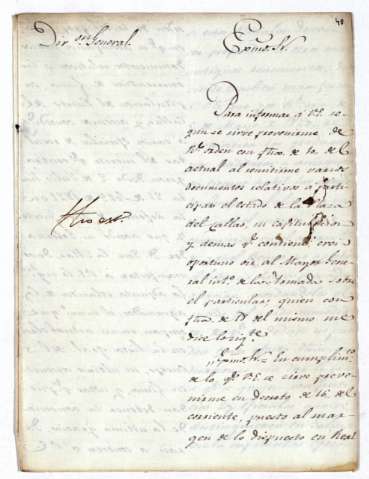 48
Dir.on General.
Exmo. Sr.
Para informar a V.E. se
gun se sirve prevenirme de
Rl. orden con fha. de 10 del
actual al remitirme varios
documentos relativos a parti
cipar el estado de la Plaza
del Callao, su capitulacion
y demas qe. contiene crei
oportuno oir al Mayor Gene
ral intno. de la Armada sobre
el particular; quien con
fha. de 17 del mismo me
dice lo sigte.
"Exmo. Sr. = En cumplimto.
de lo qe. V.E. se sirve preve
nirme en decreto de 16 del
corriente, puesto al mar
gen de lo dispuesto en Real